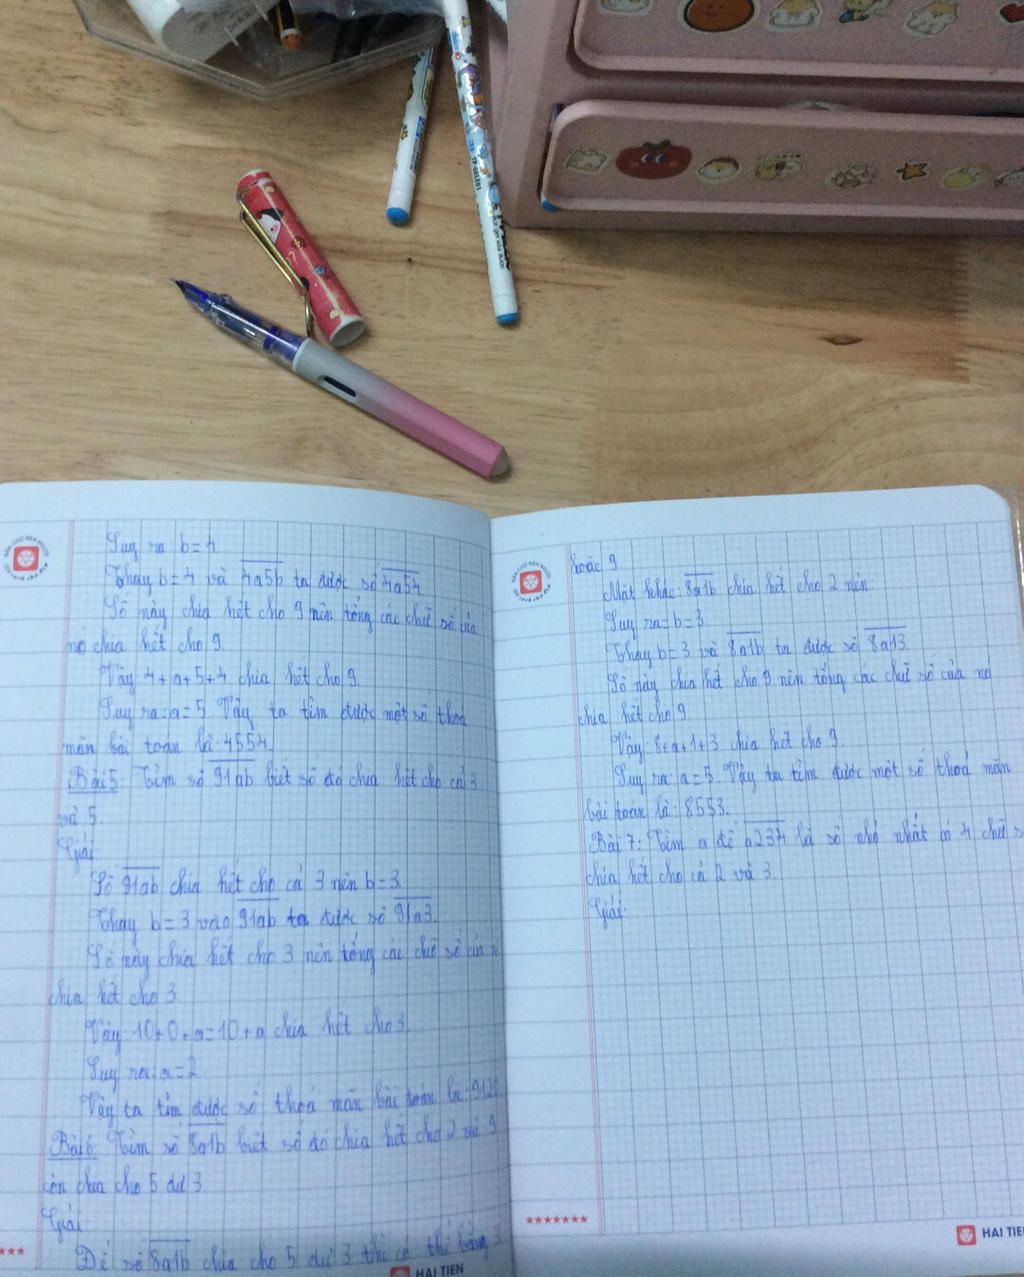 Suy ra: b=4
Thay b=4 và 4a5b ta được số 4a54
Số này chia hết cho 9 nên tổng các chữ số của
nó chia hết cho 9.
Vậy 4+a+5+4 chia hết cho 9.
Suy ra: a=5. Vậy ta tìm được một số thoả
mãn bài toán là: 4554.
Bài 5: Tìm số 91ab biết số đó chia hết cho cả 3
và 5.
Giải
Số 91ab chia hết cho cả 3 nên b=3.
Thay b=3 vào 91ab ta được số 91a3.
Số này chia hết cho 3 nên tổng các chữ số của
chia hết cho 3
Vậy: 10+0+a=10+a chia hết cho 3.
Suy ra: a=2
Vậy ta tìm được số thoả mãn bài toán là: 912
Bài 6: Tìm số 8a1b biết số đó chia hết cho 2 và 9
còn chia cho 5 dư 3
Giải:
Để số 8a1b chia cho 5 dư 3 thì có thể bằng 3
HẢI TIẾN
hoặc 9.
Mặt khác: 8a1b chia hết cho 2 nên:
Suy ra=b=3
Thay b=3 và 8a1b ta được số 8a13.
Số này chia hết cho 9 nên tổng các chữ số của nó
chia hết cho 9.
Vậy: 8+a+1+3 chia hết cho 9.
Suy ra: a=5. Vậy ta tìm được một số thoả mãn
bài toán là: 8553.
Bài 7: Tìm a để a234 là số nhỏ nhất có 4 chữ s
chia hết cho cả 2 và 3.
Giải:
HẢI TIẾ